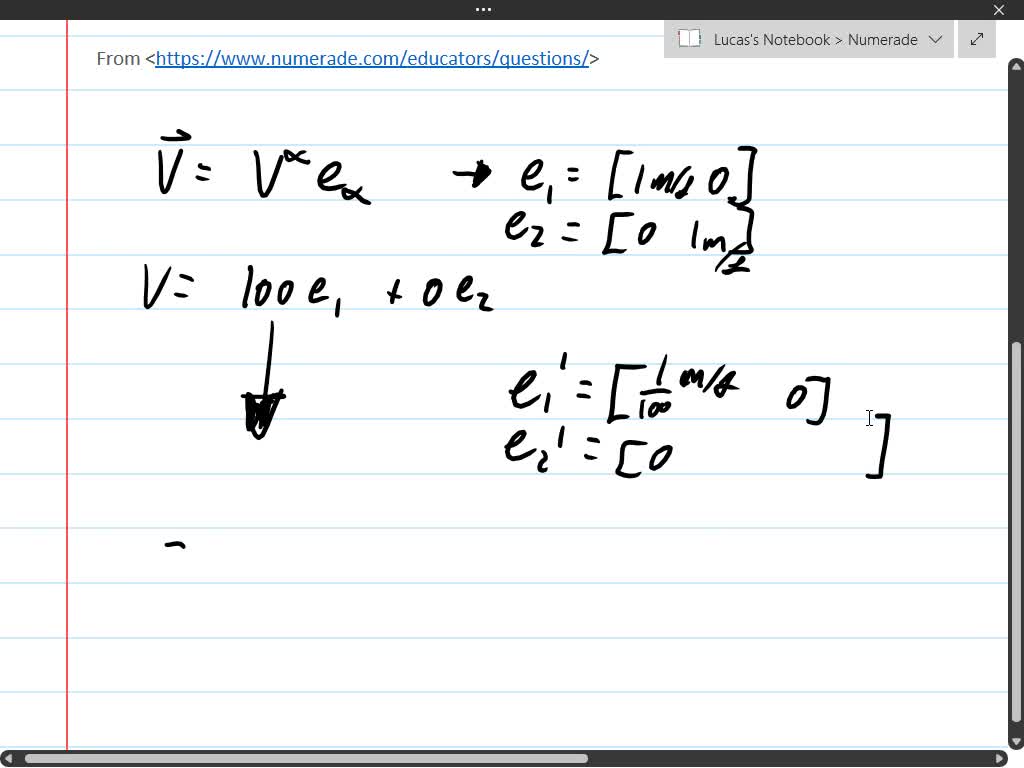 ...
Lucas's Notebook > Numerade
From <https://www.numerade.com/educators/questions/>
V⃗ = V^α e_α → e₁ = [1 m/s 0]
e₂ = [0 1 m/s]
V = 100 e₁ + 0 e₂
e₁' = [1/100 m/s 0]
e₂' = [0 ]
-